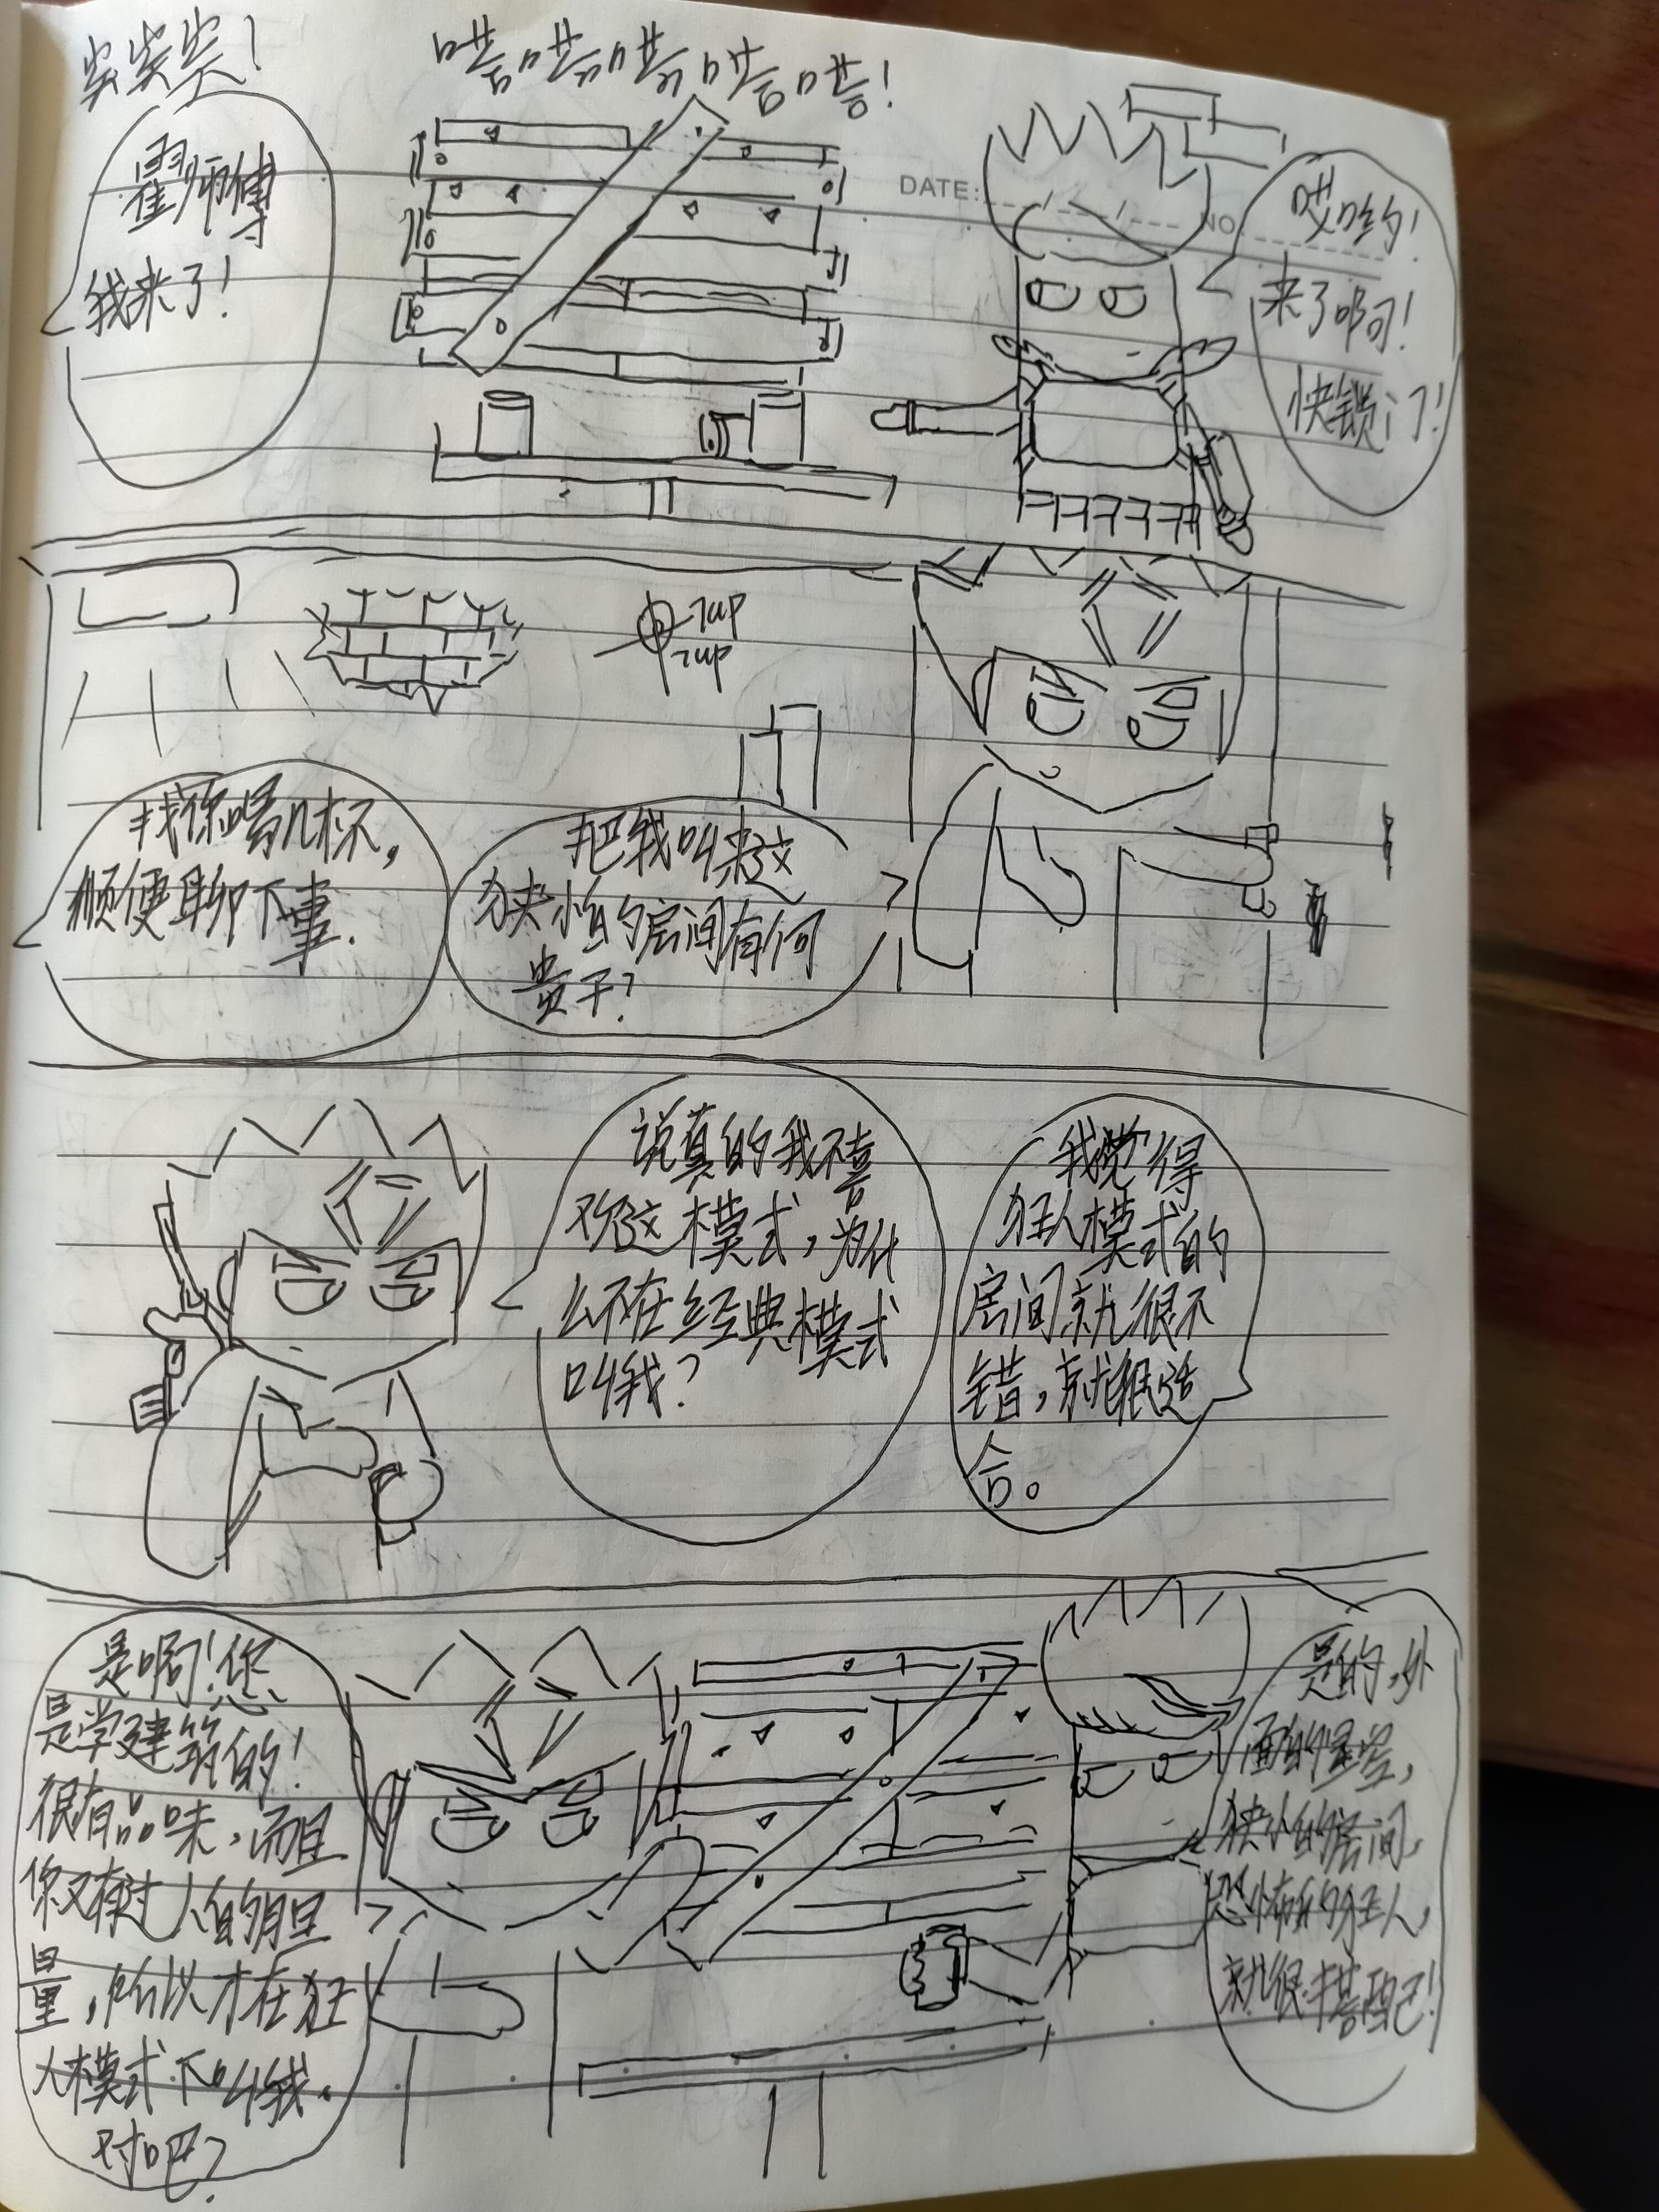 突突突!
嗒嗒嗒嗒嗒!
霍师傅
我来了!
DATE:
NO.
哎哟!
来了啊!
快锁门!
7up
7up
找你喝几杯,
顺便聊下事.
把我叫来这
狭小的房间有何
贵干?
说真的我不喜
欢这模式,为什
么不在经典模式
叫我?
我觉得
狂人模式的
房间就很不
错,就很适
合。
是啊!您
是学建筑的!
很有品味,而且
你又有过人的胆
量,所以才在狂
人模式下叫我。
对吧?
是的,外
面的
狭小的房间,
恐怖的狂人,
就很搭配!